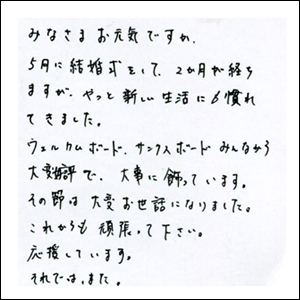 みなさま お元気ですか。
5月に結婚式をして、2か月が経ち
ますが、やっと新しい生活にも慣れ
てきました。
ウェルカムボード、サンクスボード みんなから
大好評で、大事に飾っています。
その節は大変お世話になりました。
これからも頑張って下さい。
応援しています。
それでは、また。